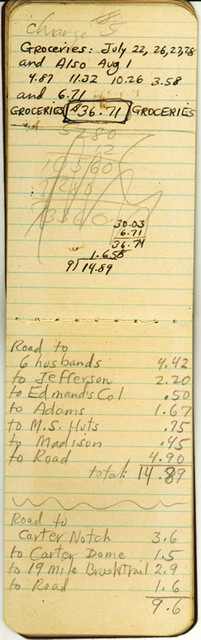 Charge $5
Groceries: July 22, 26, 27, 28
and Also Aug 1
4.87 11.32 10.26 3.58
and 6.71
GROCERIES $36.71 GROCERIES
5280
12
10560
5280
63360
30.03
6.71
36.74
1.655
9)14.89
Road to
6 husbands 4.42
to Jefferson 2.20
to Edmands Col .50
to Adams 1.67
to M.S. Huts .75
to Madison .45
to Road 4.90
total: 14.89
Road to
Carter Notch 3.6
to Carter Dome 1.5
to 19 Mile Brook trail 2.9
to Road 1.6
9.6